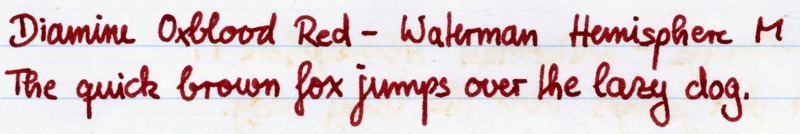 Diamine Oxblood Red - Waterman Hemisphere M
The quick brown fox jumps over the lazy dog.